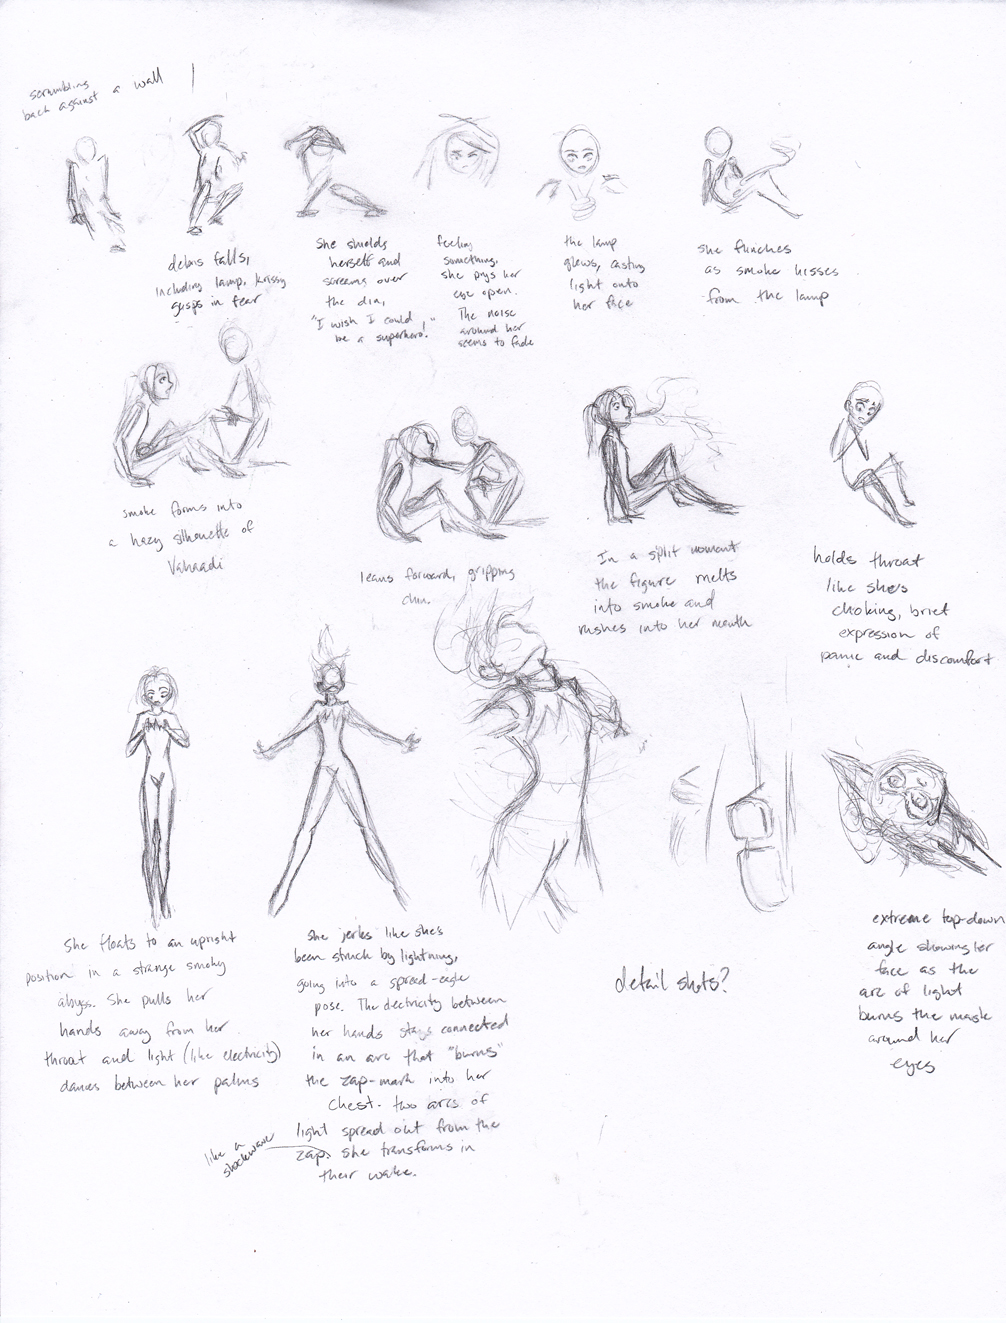 scrambling
back against a wall
debris falls,
including lamp, krissy
gasps in fear
She shields
herself and
screams over
the din,
"I wish I could
be a superhero!"
feeling
something,
she prys her
eye open.
The noise
around her
seems to fade
the lamp
glows, casting
light onto
her face
she flinches
as smoke hisses
from the lamp
smoke forms into
a hazy silhouette of
Vahaadi
leans forward, gripping
chin.
In a split moment
the figure melts
into smoke and
rushes into her mouth
holds throat
like she's
choking, brief
expression of
panic and discomfort
She floats to an upright
position in a strange smoky
abyss. She pulls her
hands away from her
throat and light (like electricity)
dances between her palms
She jerks like she's
been struck by lightning,
going into a spread-eagle
pose. The electricity between
her hands stays connected
in an arc that "burns"
the zap-mark into her
chest. two arcs of
light spread out from the
zap, she transforms in
their wake.
like a
shockwave
detail shots?
extreme top-down
angle showing her
face as the
arc of light
burns the mask
around her
eyes